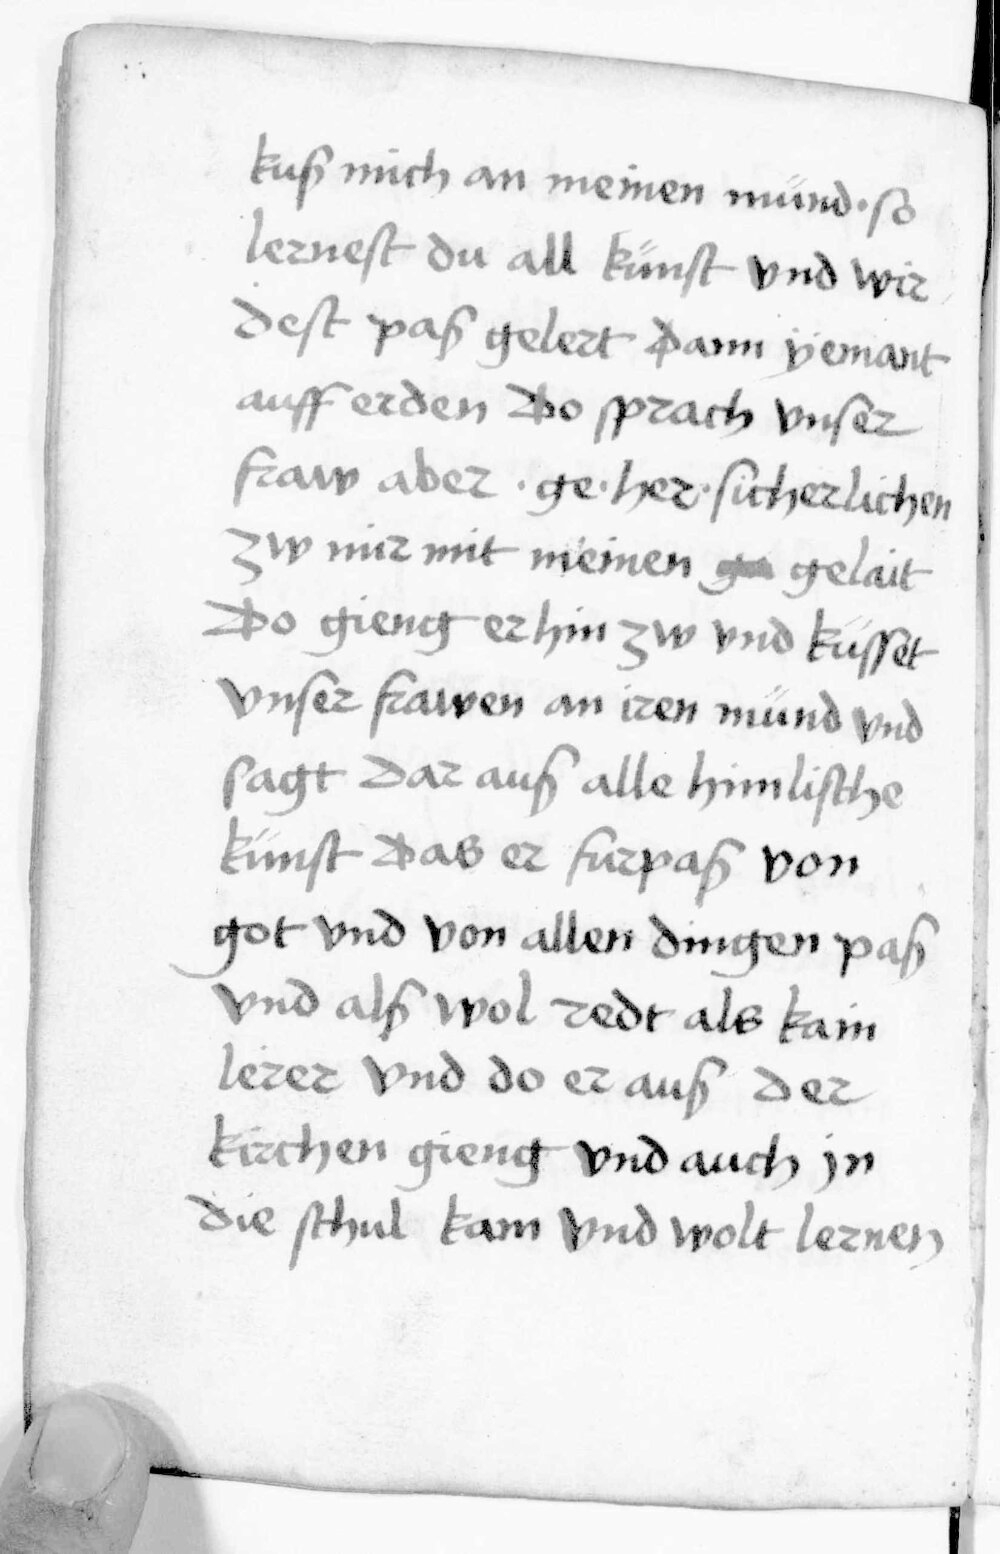 kuß mich an meinen mund · so
lernest du all künst vnd wir
dest paß gelert Dann yemant
auff erden Do sprach vnser
fraw aber · ge · her · sicherlichen
zw mir mit meinen gelait
Do gieng er hin zw vnd küsset
vnser frawen an iren mund vnd
sagt dar auß alle himlische
künst Das er furpaß von
got vnd von allen dingen paß
vnd alß wol redt als kain
lerer vnd do er auß der
kirchen gieng vnd auch jn
die schul kam vnd wolt lernen